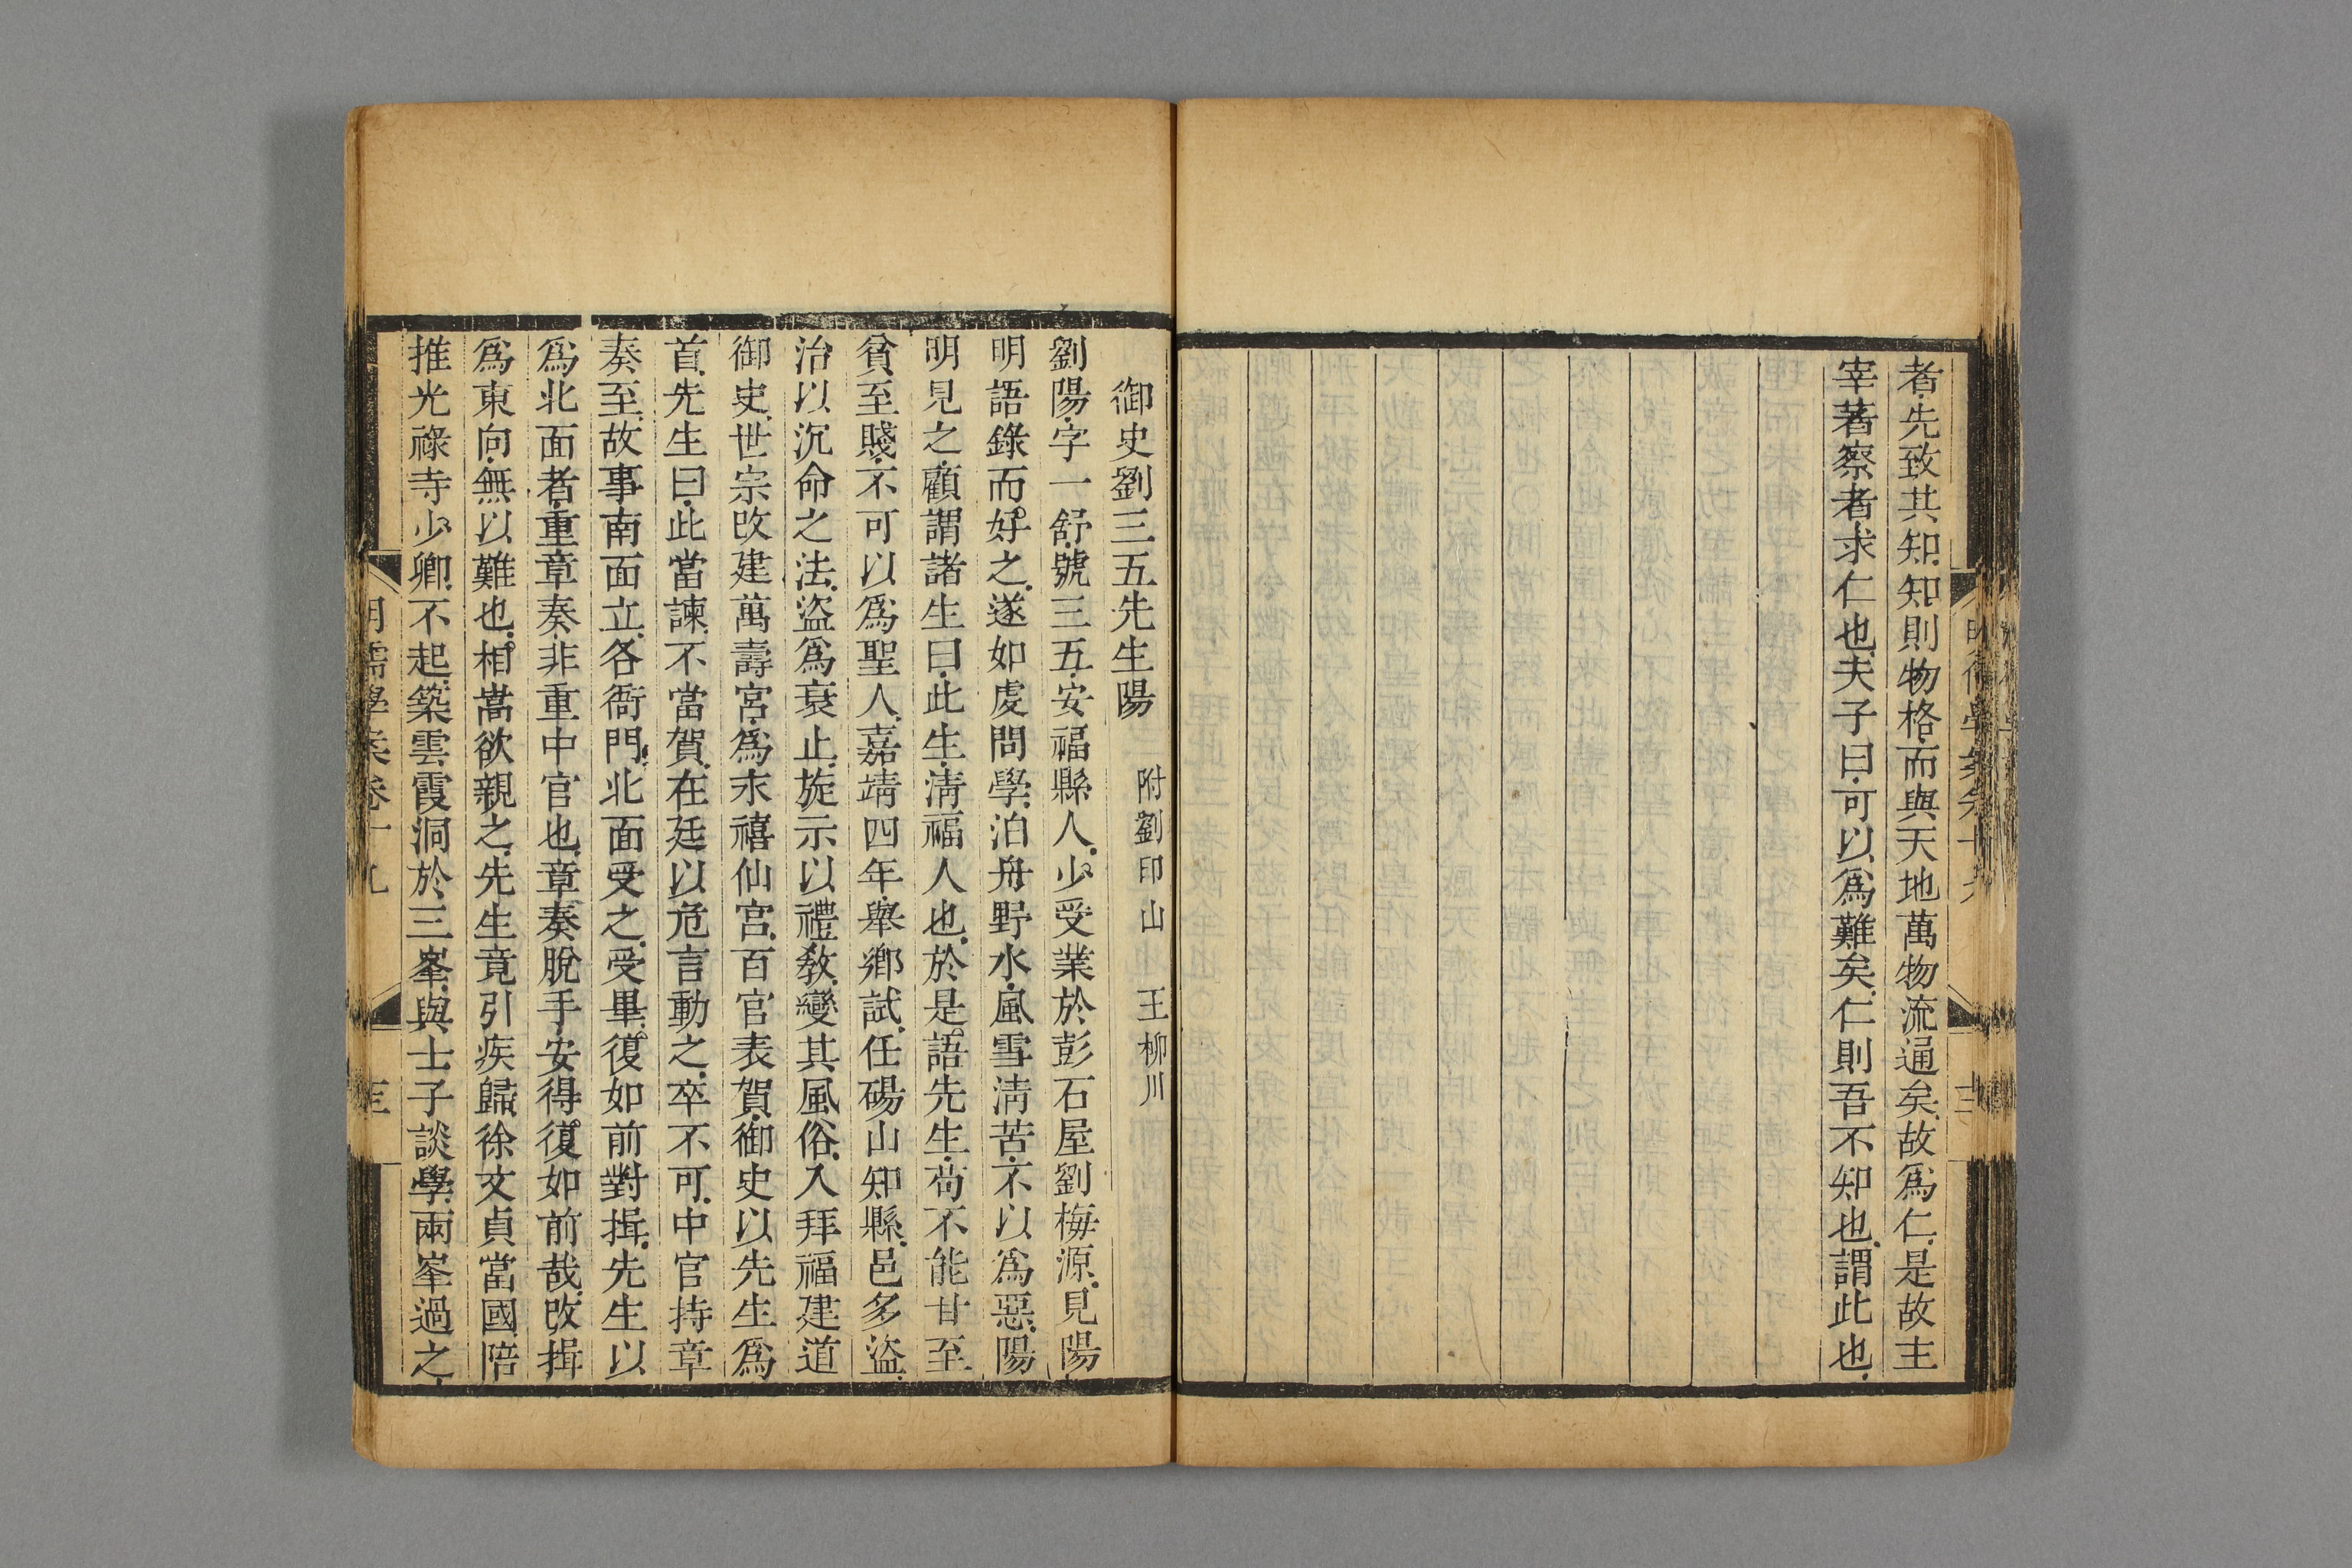 者先致其知知則物格而與天地萬物流通矣故爲仁是故主
宰著察者求仁也夫子曰可以爲難矣仁則吾不知也謂此也
御史劉三五先生陽 附劉印山 王柳川
劉陽字一舒號三五安福縣人少受業於彭石屋劉梅源見陽
明語錄而好之遂如虔問學泊舟野水風雪清苦不以爲惡陽
明見之顧謂諸生曰此生清福人也於是語先生苟不能甘至
貧至賤不可以爲聖人嘉靖四年舉鄉試任碭山知縣邑多盜
治以沉命之法盜爲衰止旋示以禮敎變其風俗入拜福建道
御史世宗改建萬壽宮爲永禧仙宮百官表賀御史以先生爲
首先生曰此當諫不當賀在廷以危言動之卒不可中官持章
奏至故事南面立各衙門北面受之受畢復如前對揖先生以
爲北面者重章奏非重中官也章奏脫手安得復如前哉改揖
爲東向無以難也相嵩欲親之先生竟引疾歸徐文貞當國陪
推光祿寺少卿不起築雲霞洞於三峯與士子談學兩峯過之
明儒學案卷十九